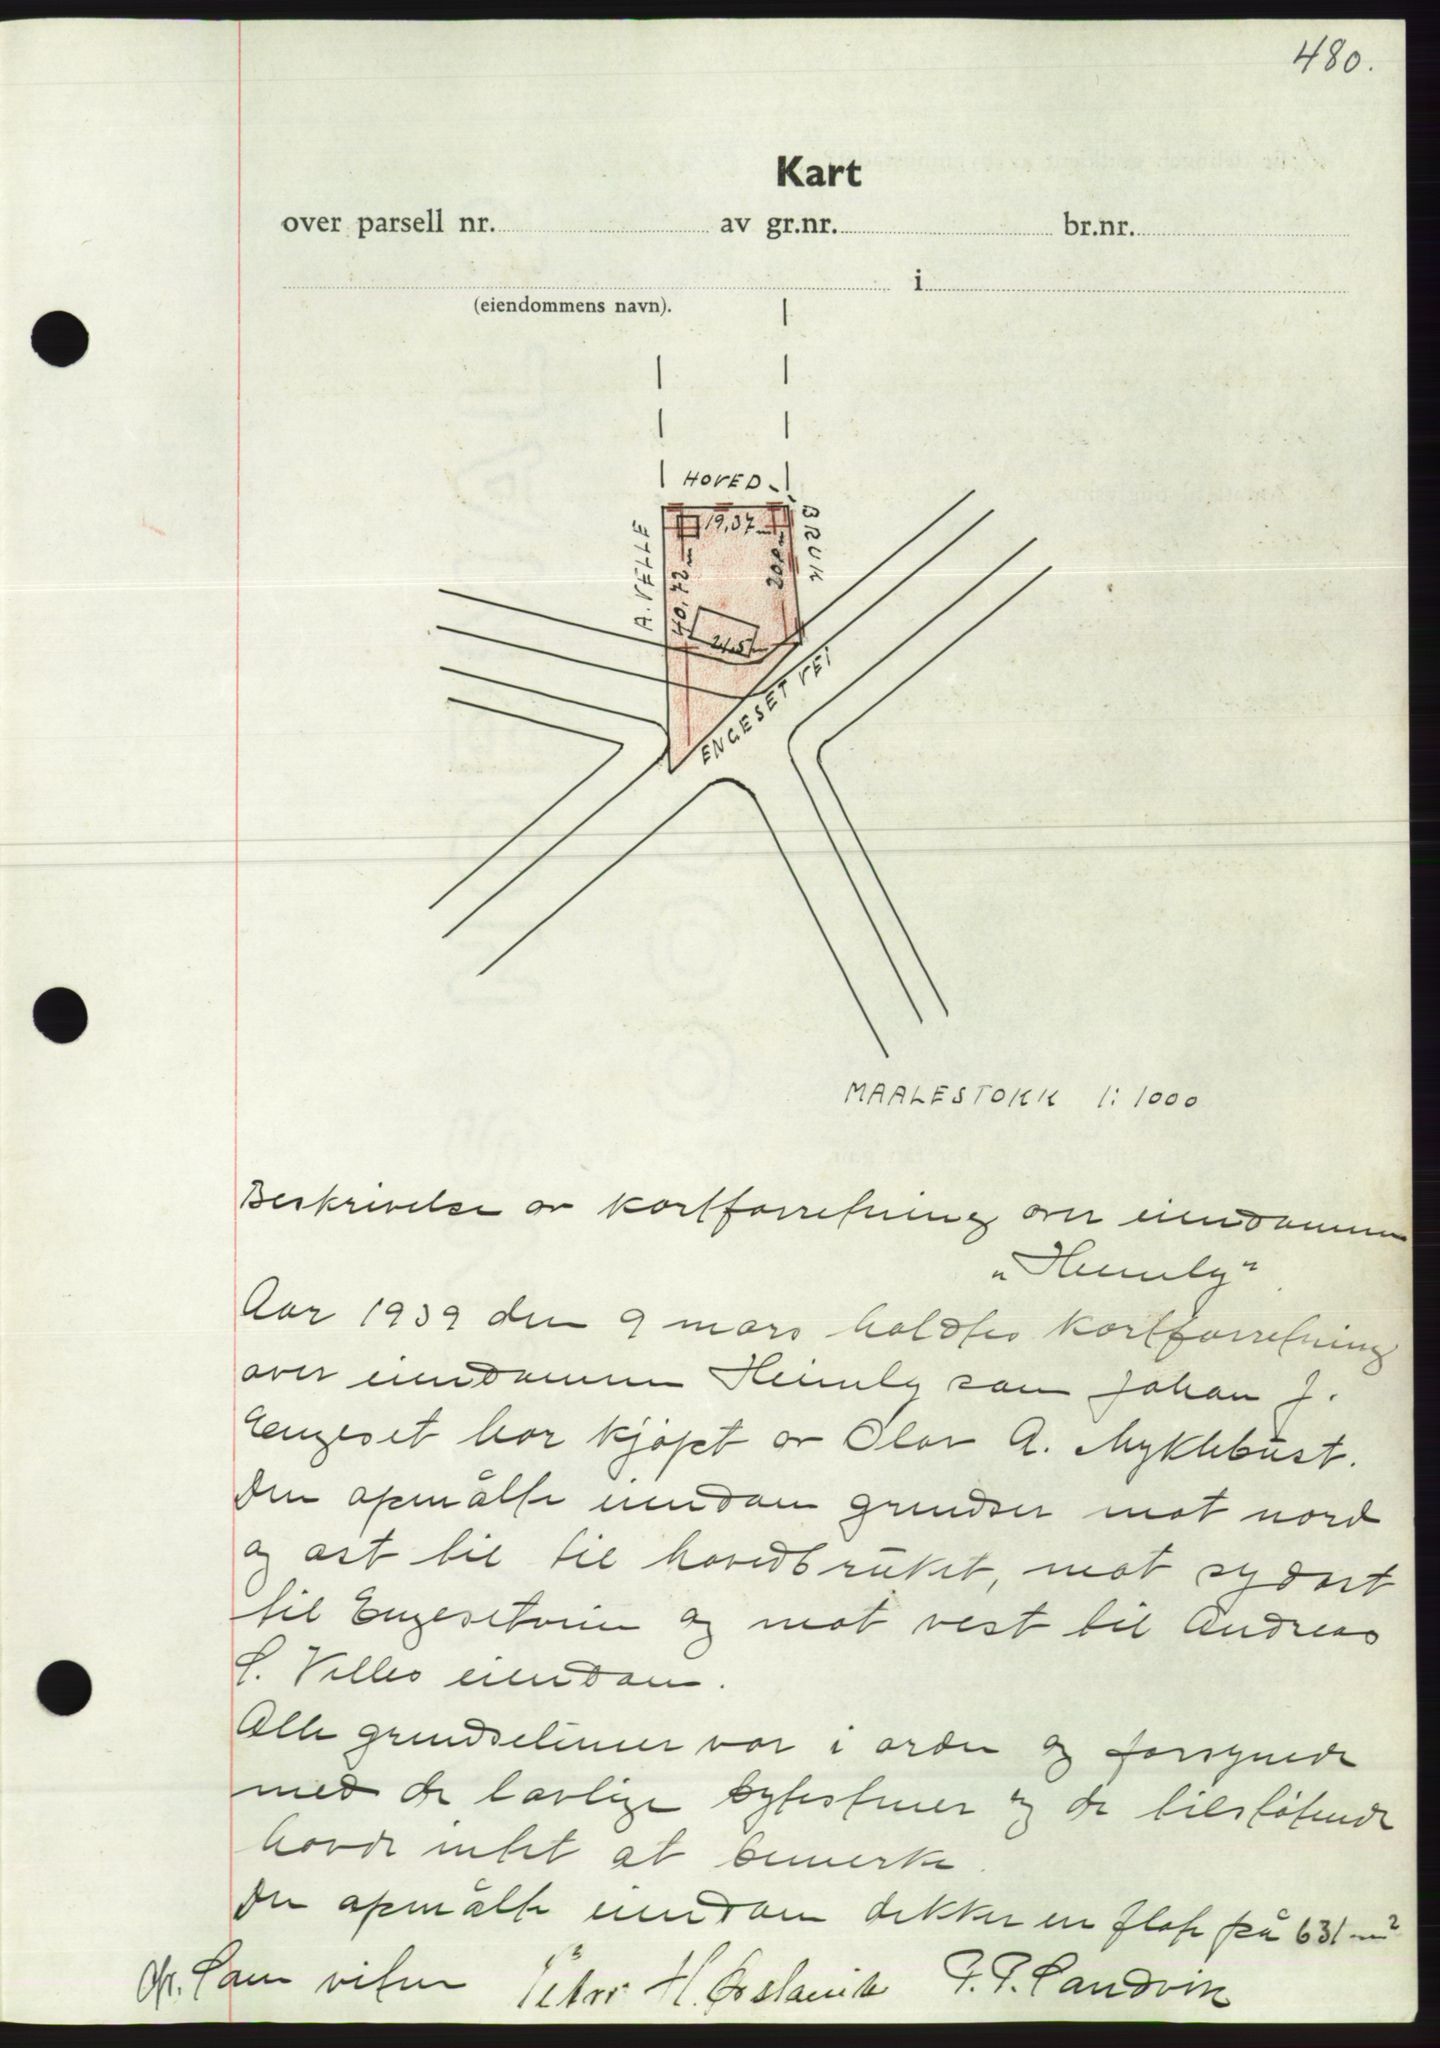 480.
Kart
over parsell nr. av gr.nr. br.nr.
i
(eiendommens navn).
HOVED-
BRUK
A. VELLE
19,37 m
40,72 m
20,0 m
24,5 m
ENGESET VEI
MAALESTOKK 1:1000
Beskrivelse av kartforretning over eiendommen
"Heimly"
Aar 1939 den 9 mars holdtes kartforretning
over eiendommen Heimly som Johan J.
Engeset har kjøpt av Olav A. Myklebust.
Den opmålte eiendom grendser mot nord
og øst til til hovedbruket, mot sydøst
til Engesetveien og mot vest til Andreas
S. Velles eiendom.
Alle grendselinier var i orden og forsynede
med de lovlige bytestener og de tilstøtende
havde intet at bemerke.
Den opmålte eiendom dekker en flate på 631 m²
Som vitner Petter H. Ørstavik P. P. Sandvik